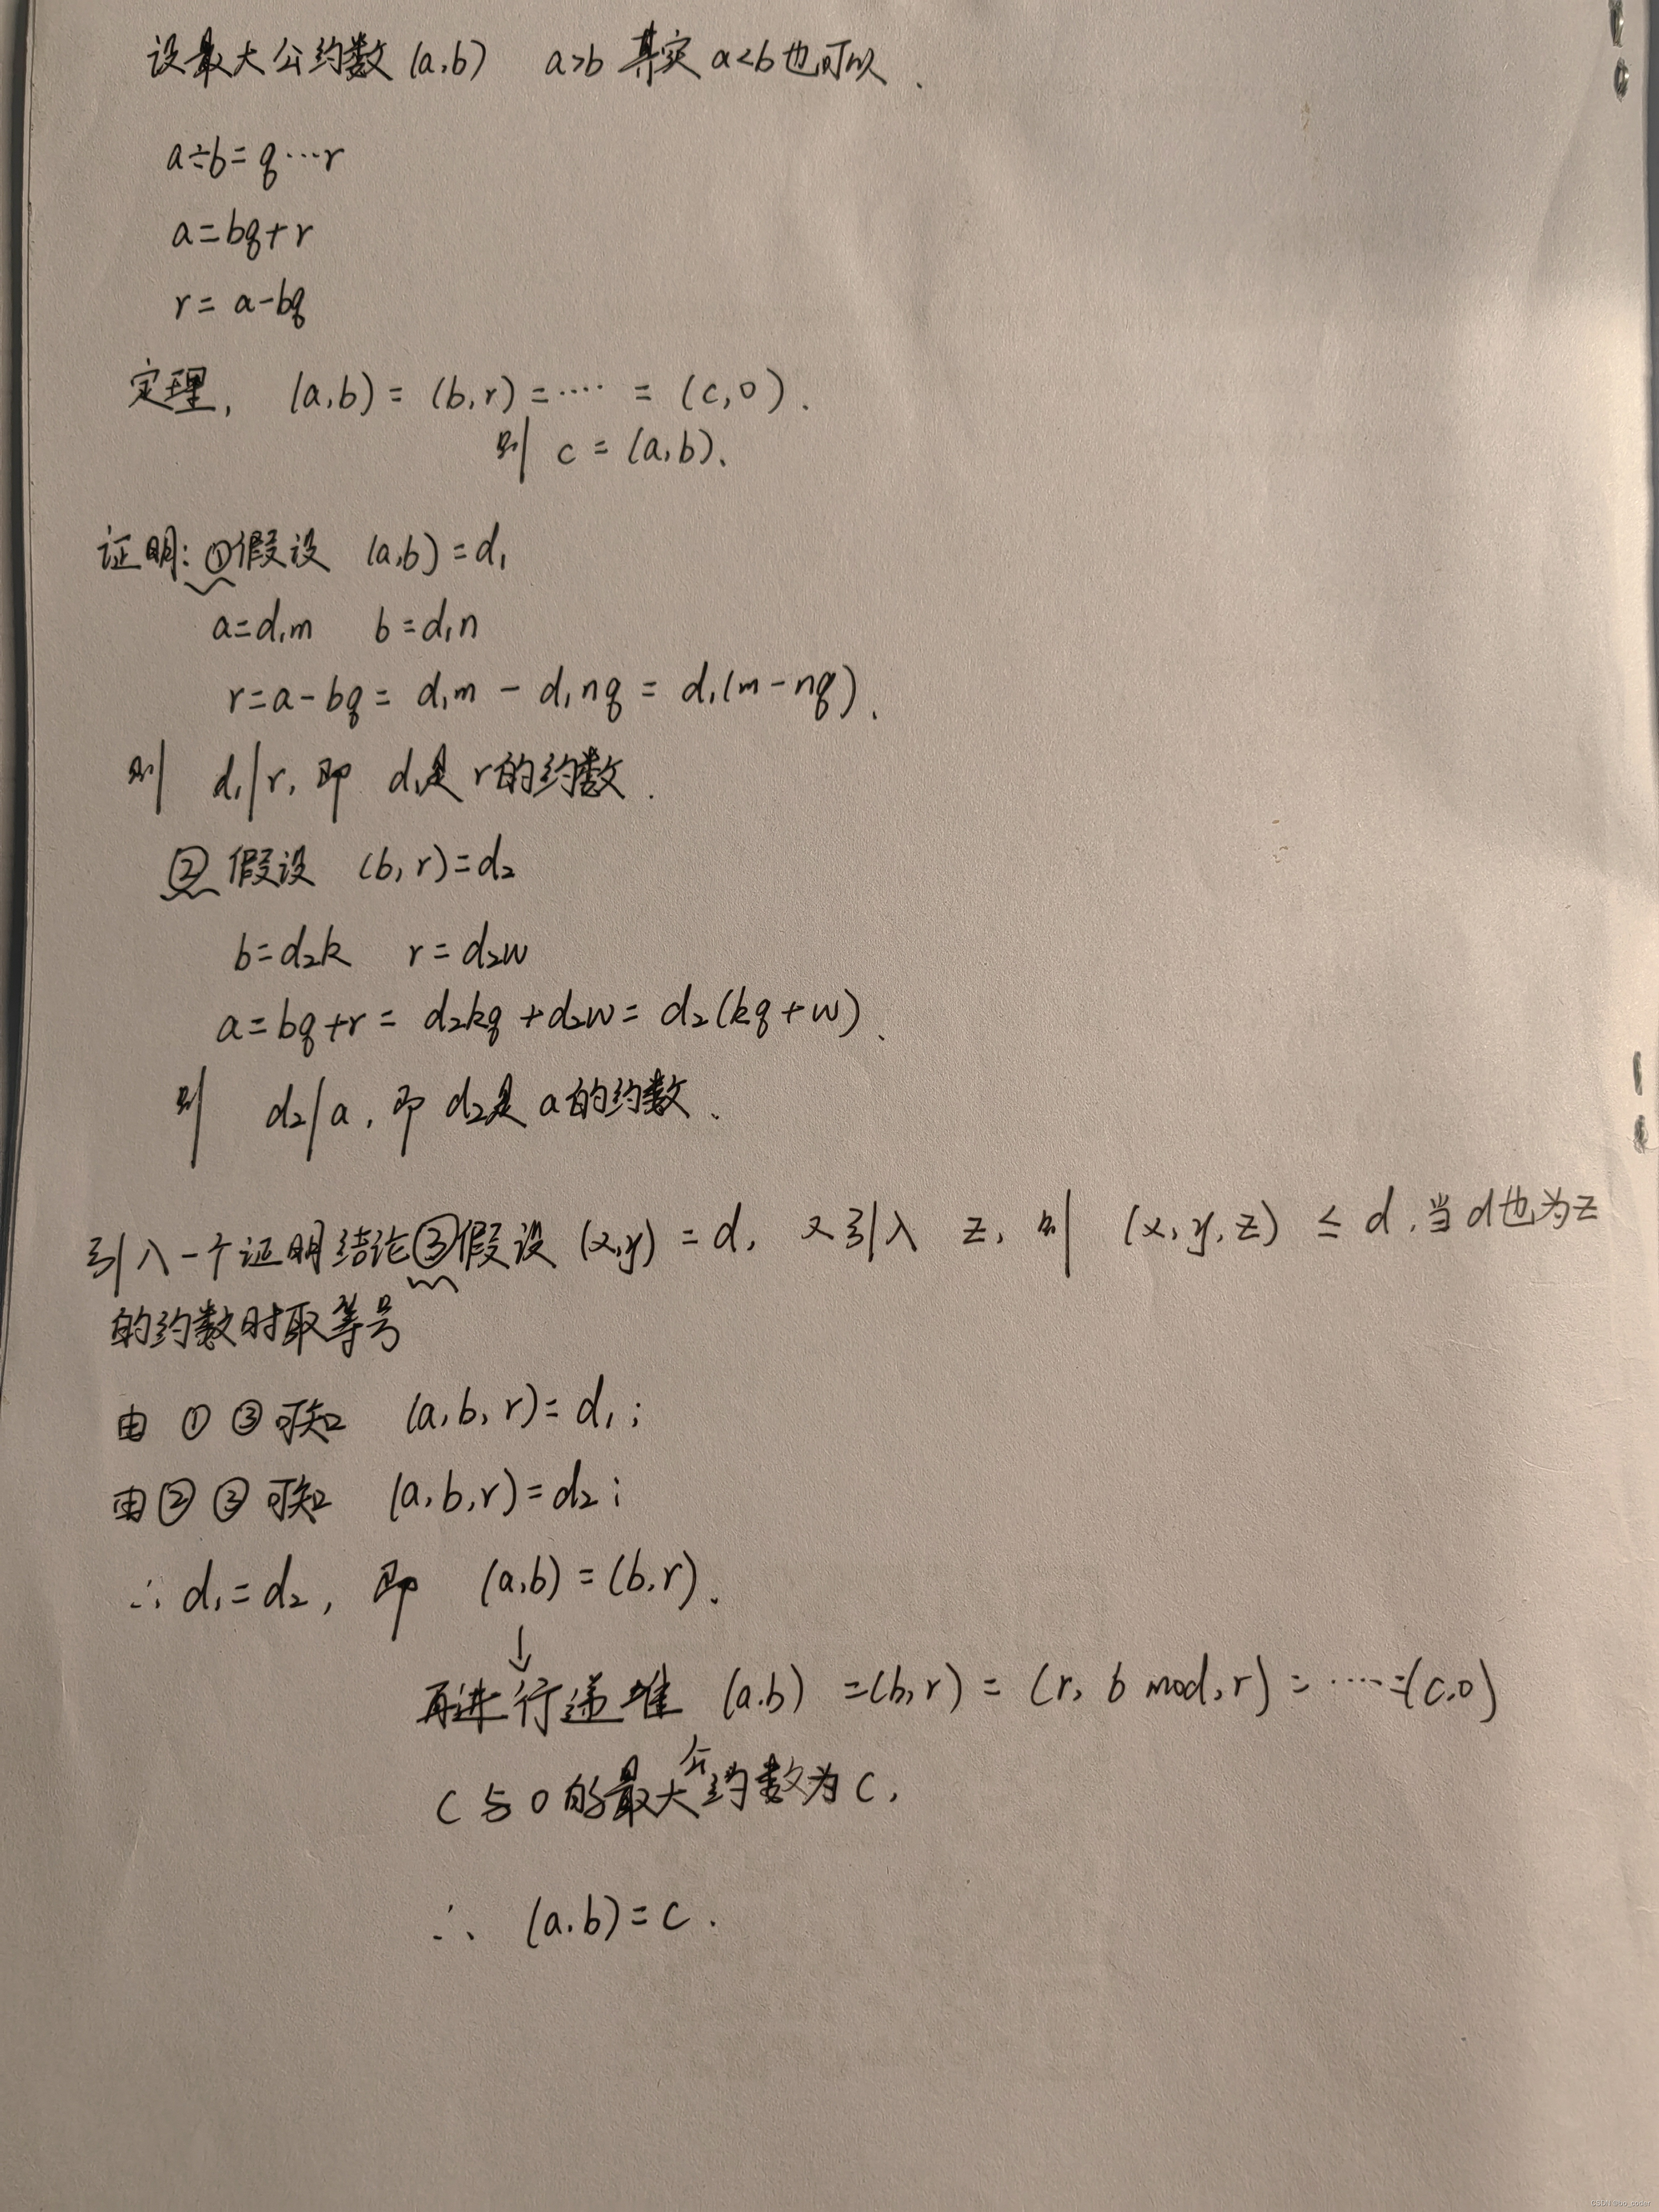 设最大公约数(a,b) a>b 其实a<b也可以.
a÷b=q…r
a=bq+r
r=a-bq
定理, (a,b)=(b,r)=…·=(c,0).
则 c=(a,b).
证明:①假设 (a,b)=d₁
a=d₁m b=d₁n
r=a-bq=d₁m-d₁nq=d₁(m-nq).
则 d₁|r,即 d₁是r的约数.
② 假设 (b,r)=d₂
b=d₂k r=d₂w
a=bq+r=d₂kq+d₂w=d₂(kq+w).
则 d₂|a,即d₂是a的约数.
引入一个证明结论③假设(x,y)=d, 又引入 z,则 (x,y,z)≤d,当d也为z
的约数时取等号
由①③可知 (a,b,r)=d₁;
由②③可知 (a,b,r)=d₂;
∴d₁=d₂,即 (a,b)=(b,r).
↓
再进行递推 (a,b)=(b,r)=(r, b mod,r)=…·=(c,0)
C与0的最大公约数为C,
∴ (a,b)=c.